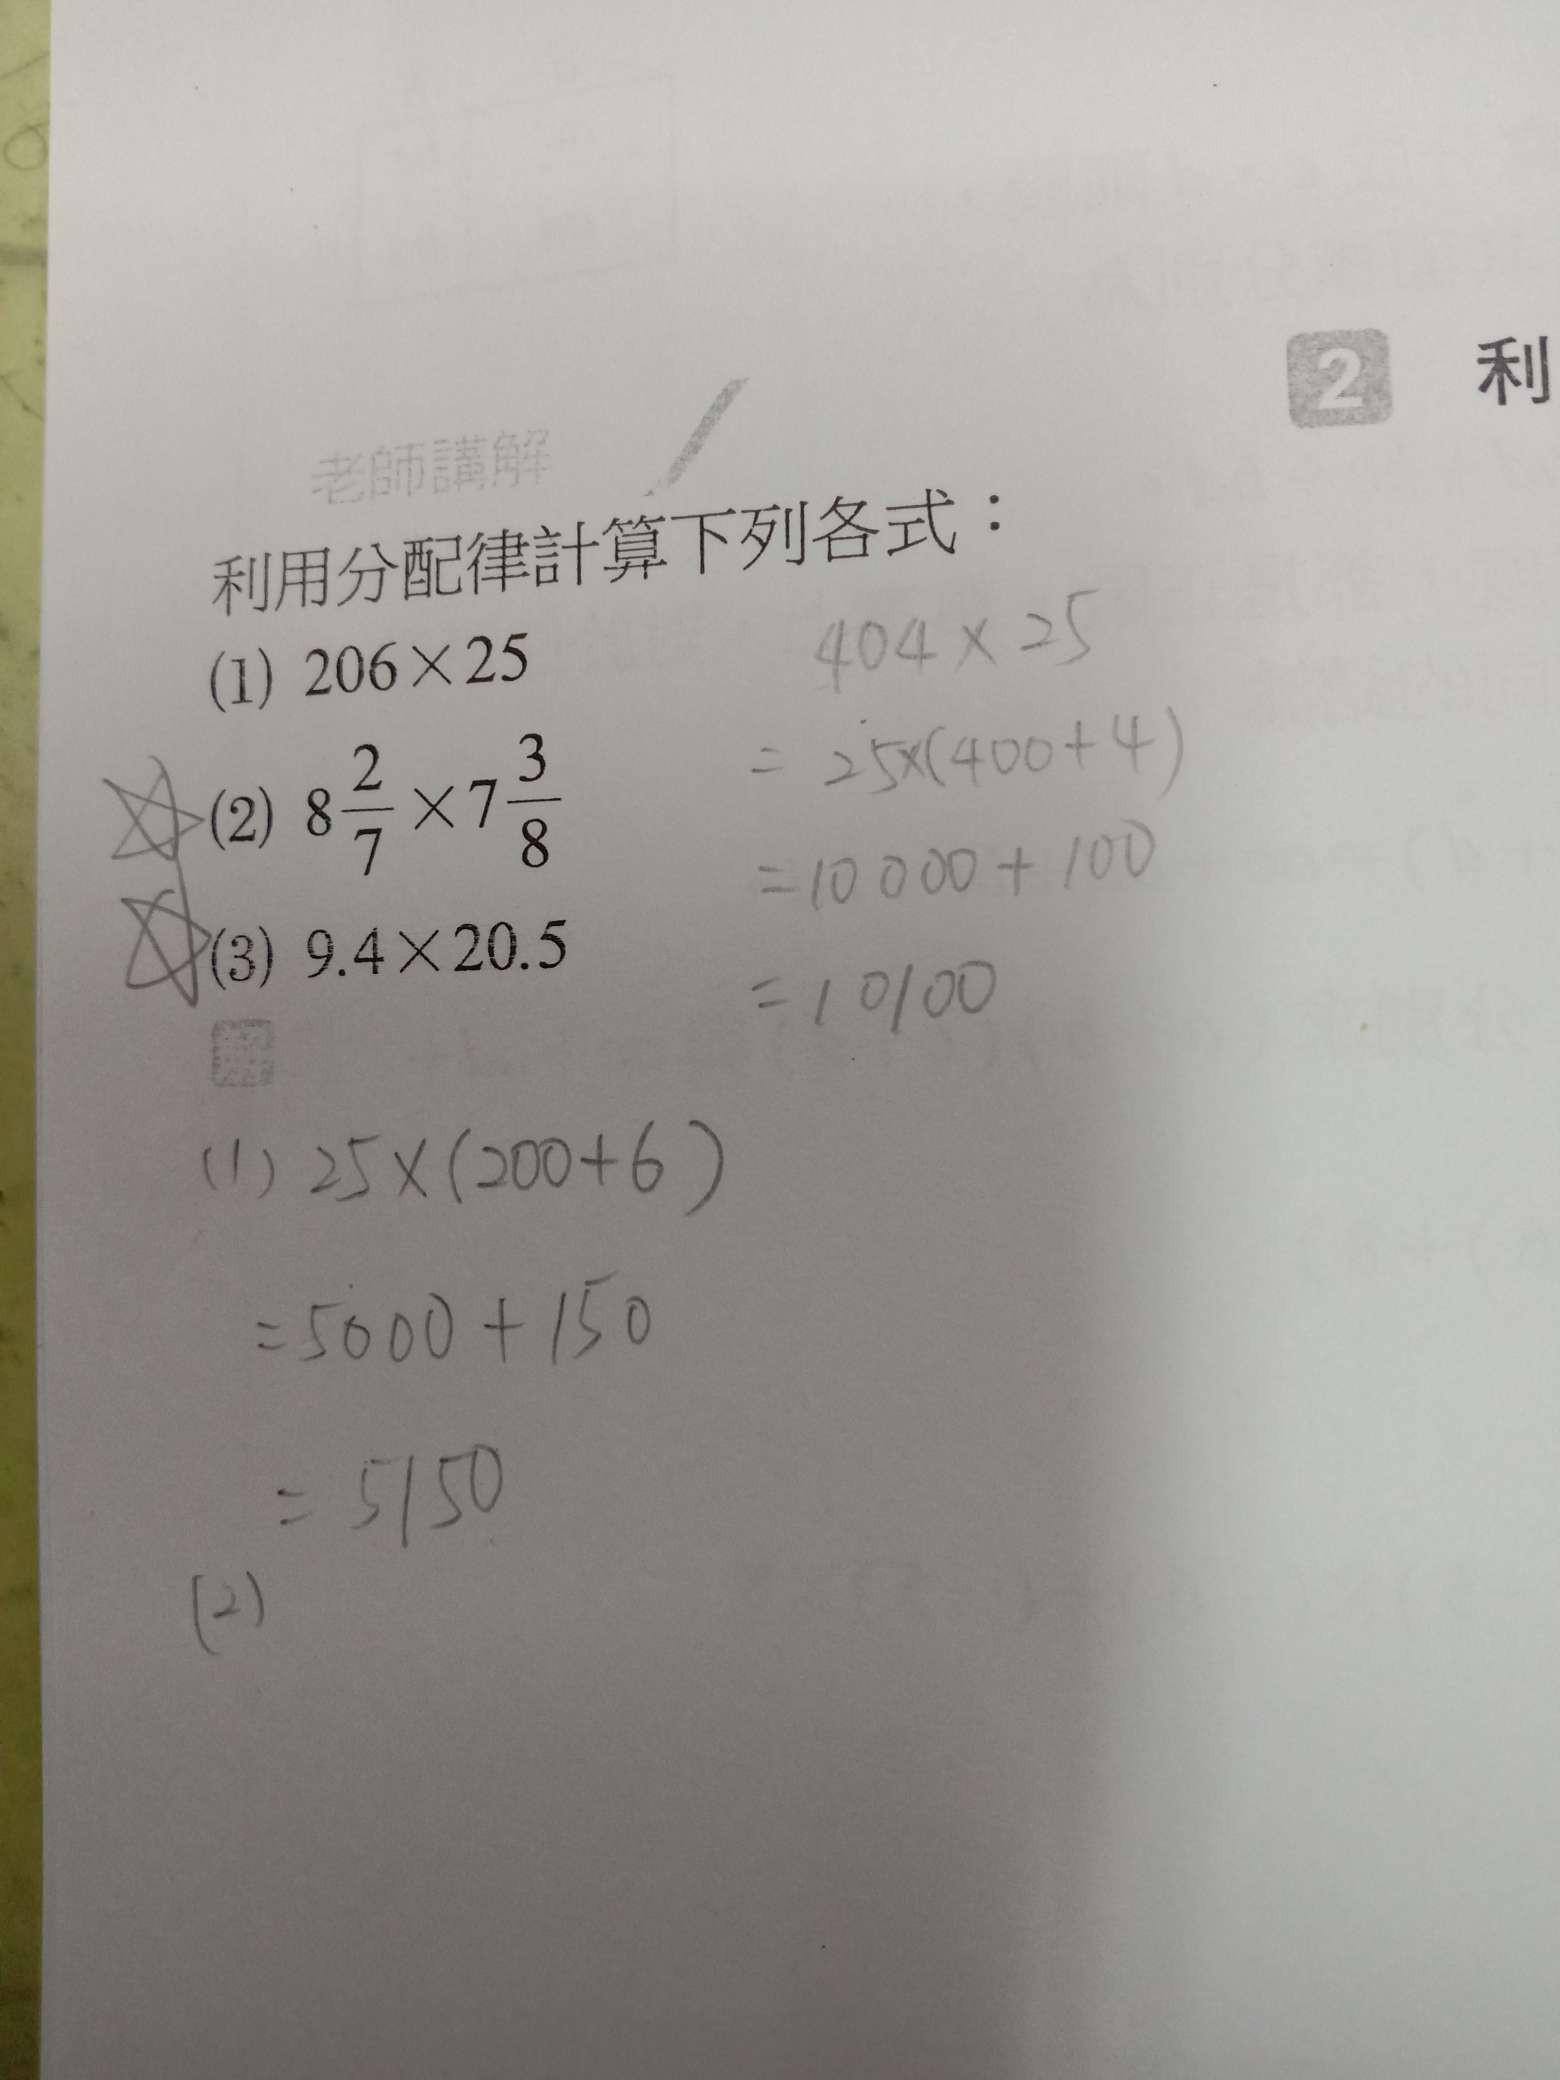 2 利
老師講解
利用分配律計算下列各式：
(1) 206×25
(2) 8 2/7 × 7 3/8
(3) 9.4×20.5
404×25
= 25×(400+4)
=10000+100
=10100
(1) 25×(200+6)
=5000+150
= 5150
(2)